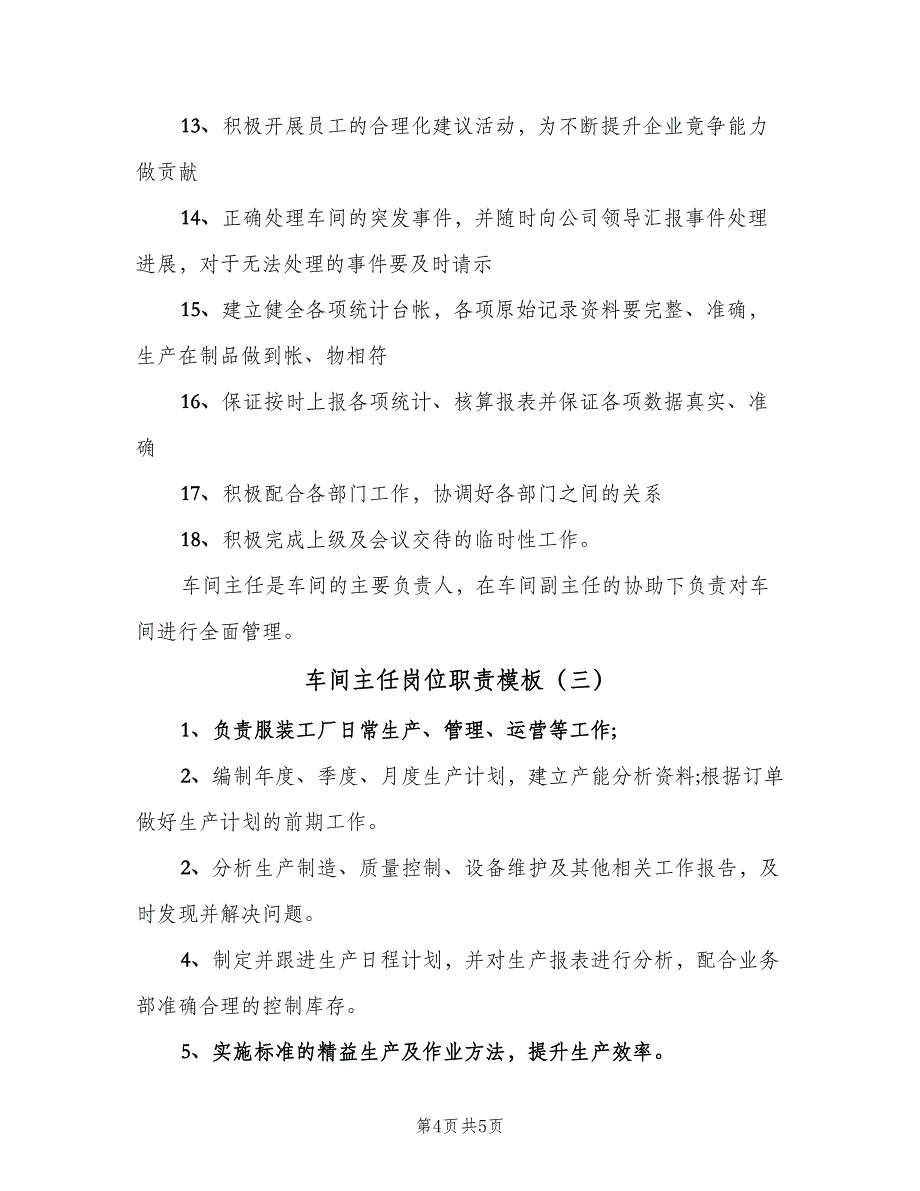 13、积极开展员工的合理化建议活动，为不断提升企业竞争能力
做贡献
14、正确处理车间的突发事件，并随时向公司领导汇报事件处理
进展，对于无法处理的事件要及时请示
15、建立健全各项统计台帐，各项原始记录资料要完整、准确，
生产在制品做到帐、物相符
16、保证按时上报各项统计、核算报表并保证各项数据真实、准
确
17、积极配合各部门工作，协调好各部门之间的关系
18、积极完成上级及会议交待的临时性工作。
车间主任是车间的主要负责人，在车间副主任的协助下负责对车
间进行全面管理。
车间主任岗位职责模板（三）
1、负责服装工厂日常生产、管理、运营等工作;
2、编制年度、季度、月度生产计划，建立产能分析资料;根据订单
做好生产计划的前期工作。
2、分析生产制造、质量控制、设备维护及其他相关工作报告，及
时发现并解决问题。
4、制定并跟进生产日程计划，并对生产报表进行分析，配合业务
部准确合理的控制库存。
5、实施标准的精益生产及作业方法，提升生产效率。
第4页共5页